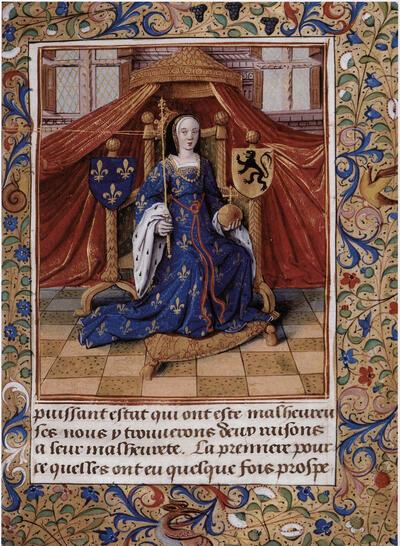 puissant estat qui ont este malheureu
ses nous y trouverons deux raisons
a leur malheurete. La premiere pour
ce quelles ont eu quelque fois prospe